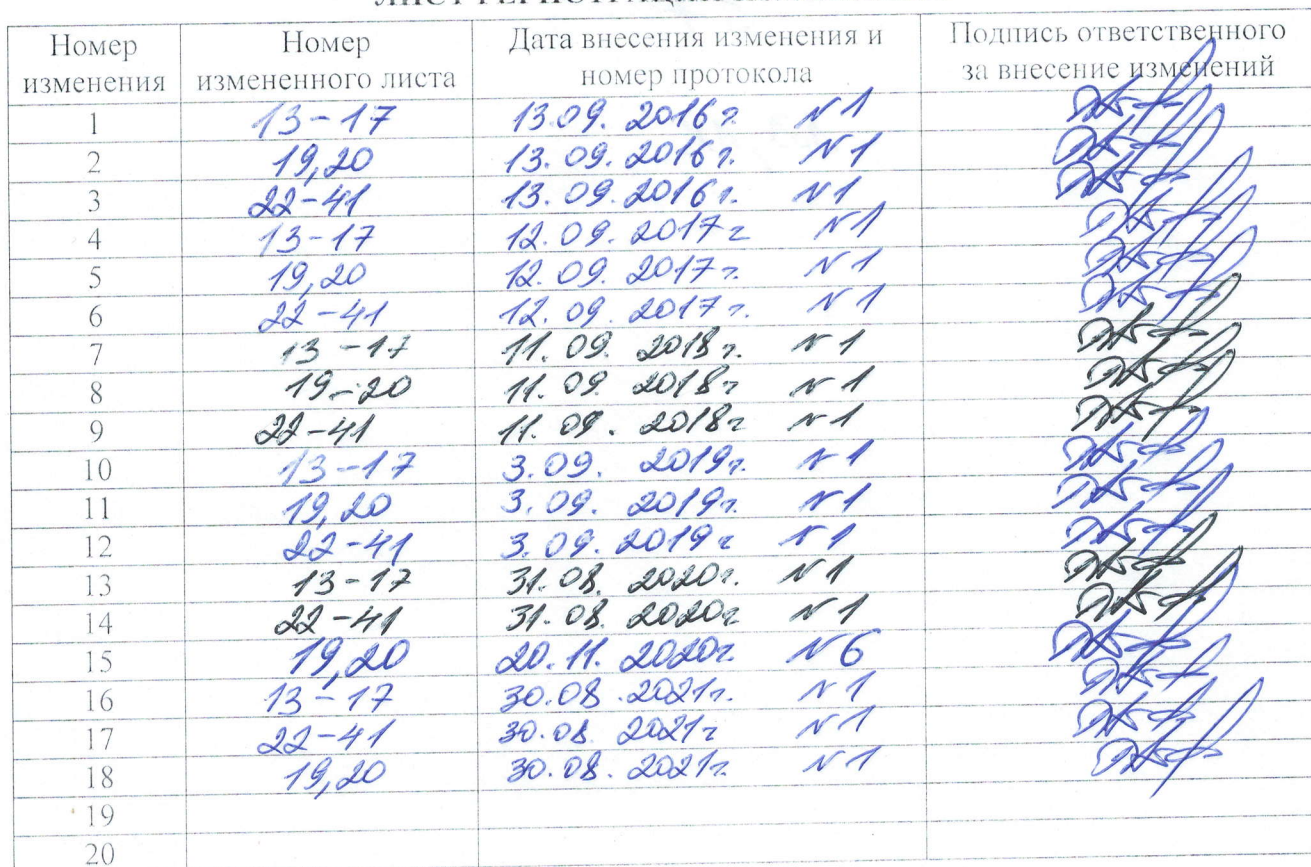 Номер изменения | Номер измененного листа | Дата внесения изменения и номер протокола | Подпись ответственного за внесение изменений
1 | 13-17 | 13.09.2016г. №1
2 | 19,20 | 13.09.2016г. №1
3 | 22-41 | 13.09.2016г. №1
4 | 13-17 | 12.09.2017г №1
5 | 19,20 | 12.09.2017г. №1
6 | 22-41 | 12.09.2017г. №1
7 | 13-17 | 11.09.2018г. №1
8 | 19-20 | 11.09.2018г №1
9 | 22-41 | 11.09.2018г №1
10 | 13-17 | 3.09.2019г. №1
11 | 19,20 | 3.09.2019г. №1
12 | 22-41 | 3.09.2019г №1
13 | 13-17 | 31.08.2020г. №1
14 | 22-41 | 31.08.2020г №1
15 | 19,20 | 20.11.2020г. №6
16 | 13-17 | 30.08.2021г. №1
17 | 22-41 | 30.08.2021г №1
18 | 19,20 | 30.08.2021г. №1
19
20